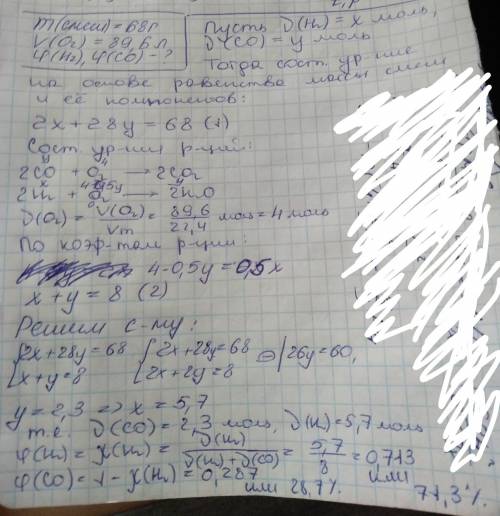 m(смеси) = 68г
V(O₂) = 89,6 л
φ(H₂), φ(CO) - ?
Пусть ν(H₂) = x моль,
ν(CO) = y моль
Тогда сост. ур-ние
на основе равенства массы смеси
и её компонентов:
2x + 28y = 68 (1)
Сост. ур-ния р-ций:
2CO + O₂ → 2CO₂
2H₂ + O₂ → 2H₂O
ν(O₂) = V(O₂)/Vm = 89,6/22,4 моль = 4 моль
По коэф-там р-ции:
4-0,5y = 0,5x
x + y = 8 (2)
Решим с-му:
{2x+28y=68 {2x+28y=68 ⊖ | 26y=60,
{x+y=8 {2x+2y=8
y = 2,3 => x = 5,7
т.е. ν(CO) = 2,3 моль, ν(H₂) = 5,7 моль
φ(H₂) = χ(H₂) = ν(H₂)/(ν(H₂)+ν(CO)) = 5,7/8 = 0,713
или 71,3%
φ(CO) = 1 - χ(H₂) = 0,287
или 28,7%